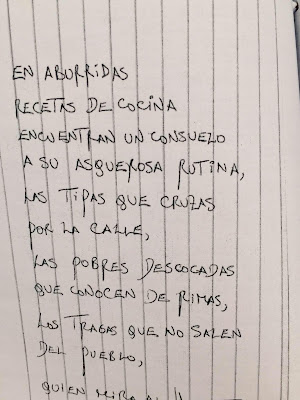 EN ABURRIDAS
RECETAS DE COCINA
ENCUENTRAN UN CONSUELO
A SU ASQUEROSA RUTINA,
LAS TIPAS QUE CRUZAS
POR LA CALLE,
LAS POBRES DESCOCADAS
QUE CONOCEN DE RIMAS,
LOS TRAGAS QUE NO SALEN
DEL PUEBLO,
QUIEN MIRA